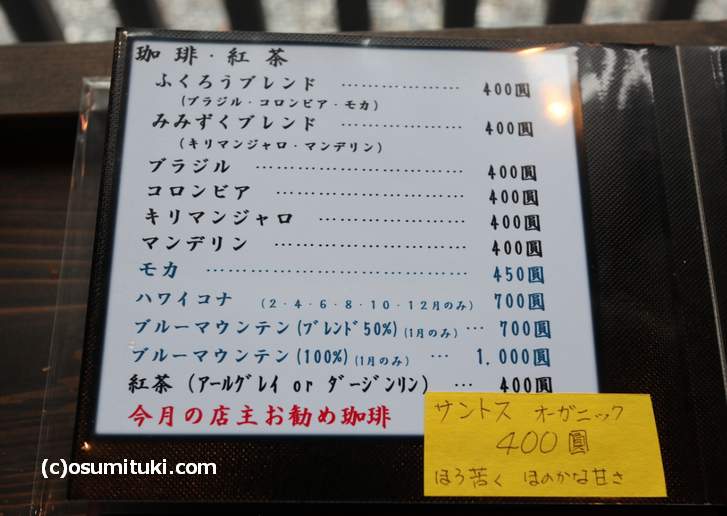 珈琲・紅茶
ふくろうブレンド ……………… 400圓
(ブラジル・コロンビア・モカ)
みみずくブレンド ……………… 400圓
(キリマンジャロ・マンデリン)
ブラジル ………………………… 400圓
コロンビア ……………………… 400圓
キリマンジャロ ………………… 400圓
マンデリン ……………………… 400圓
モカ ……………………………… 450圓
ハワイコナ (2・4・6・8・10・12月のみ) 700圓
ブルーマウンテン(ブレンド50%)(1月のみ) … 700圓
ブルーマウンテン(100%)(1月のみ) … 1,000圓
紅茶(アールグレイ or ダージンリン) … 400圓
今月の店主お勧め珈琲
サントス オーガニック
400圓
ほろ苦く ほのかな甘さ
(c)osumituki.com